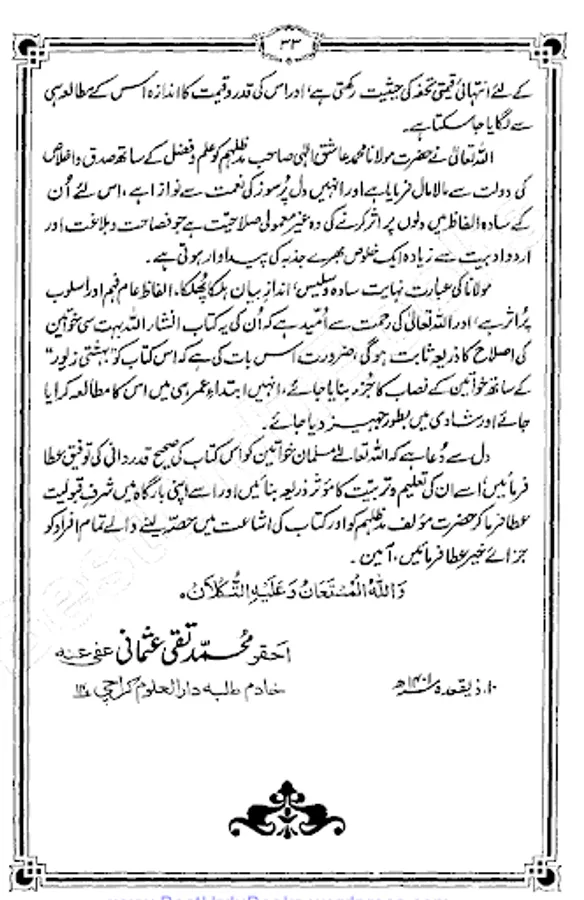 ۳۳
کے لئے انتہائی قیمتی تحفہ کی حیثیت رکھتی ہے، اور اس کی قدر و قیمت کا اندازہ اس کے مطالعہ ہی
سے لگایا جا سکتا ہے۔
اللہ تعالیٰ نے حضرت مولانا محمد عاشق الٰہی صاحب مدظلہم کو علم و فضل کے ساتھ صدق و اخلاص
کی دولت سے مالا مال فرمایا ہے اور انہیں دل پُرسوز کی نعمت سے نوازا ہے، اس لئے اُن
کے سادہ الفاظ میں دلوں پر اثر کرنے کی وہ غیر معمولی صلاحیت ہے جو فصاحت و بلاغت اور
اردو ادبیت سے زیادہ ایک خلوص بھرے جذبہ کی پیداوار ہوتی ہے۔
مولانا کی عبارت نہایت سادہ و سلیس، اندازِ بیان ہلکا پھلکا، الفاظ عام فہم اور اسلوب
پُراثر ہے، اور اللہ تعالیٰ کی رحمت سے اُمید ہے کہ اُن کی یہ کتاب انشاء اللہ بہت سی خواتین
کی اصلاح کا ذریعہ ثابت ہوگی، ضرورت اس بات کی ہے کہ اس کتاب کو "بہشتی زیور"
کے ساتھ خواتین کے نصاب کا جُزء بنایا جائے، انہیں ابتداءِ عمر ہی میں اس کا مطالعہ کرایا
جائے اور شادی میں بطور جہیز دیا جائے۔
دل سے دُعا ہے کہ اللہ تعالےٰ مسلمان خواتین کو اس کتاب کی صحیح قدردانی کی توفیق عطا
فرمائیں، اُسے ان کی تعلیم و تربیت کا مؤثر ذریعہ بنائیں، اور اسے اپنی بارگاہ میں شرفِ قبولیت
عطا فرما کر حضرت مؤلف مدظلہم کو اور کتاب کی اشاعت میں حصہ لینے والے تمام افراد کو
جزائے خیر عطا فرمائیں، آمین۔
وَاللّٰهُ الْمُسْتَعَانُ وَعَلَيْهِ التُّكْلَانُ
احقر محمد تقی عثمانی عفی عنہ
خادم طلبہ دارالعلوم کراچی ۱۴
۱۰ ذیقعدہ ۱۴۰۱ھ